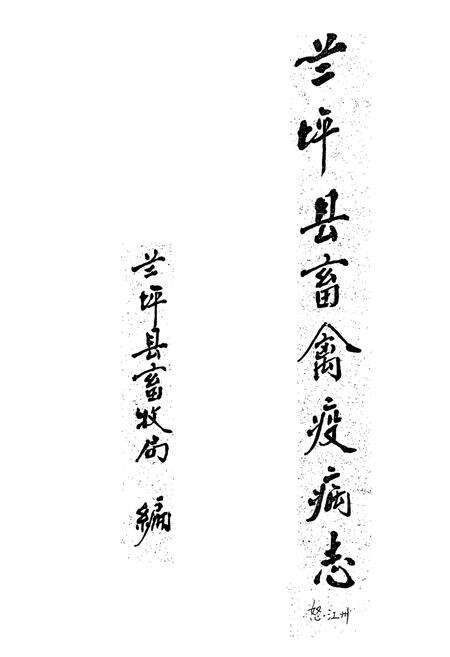 兰坪县畜禽疫病志
怒·江州
兰坪县畜牧局 编